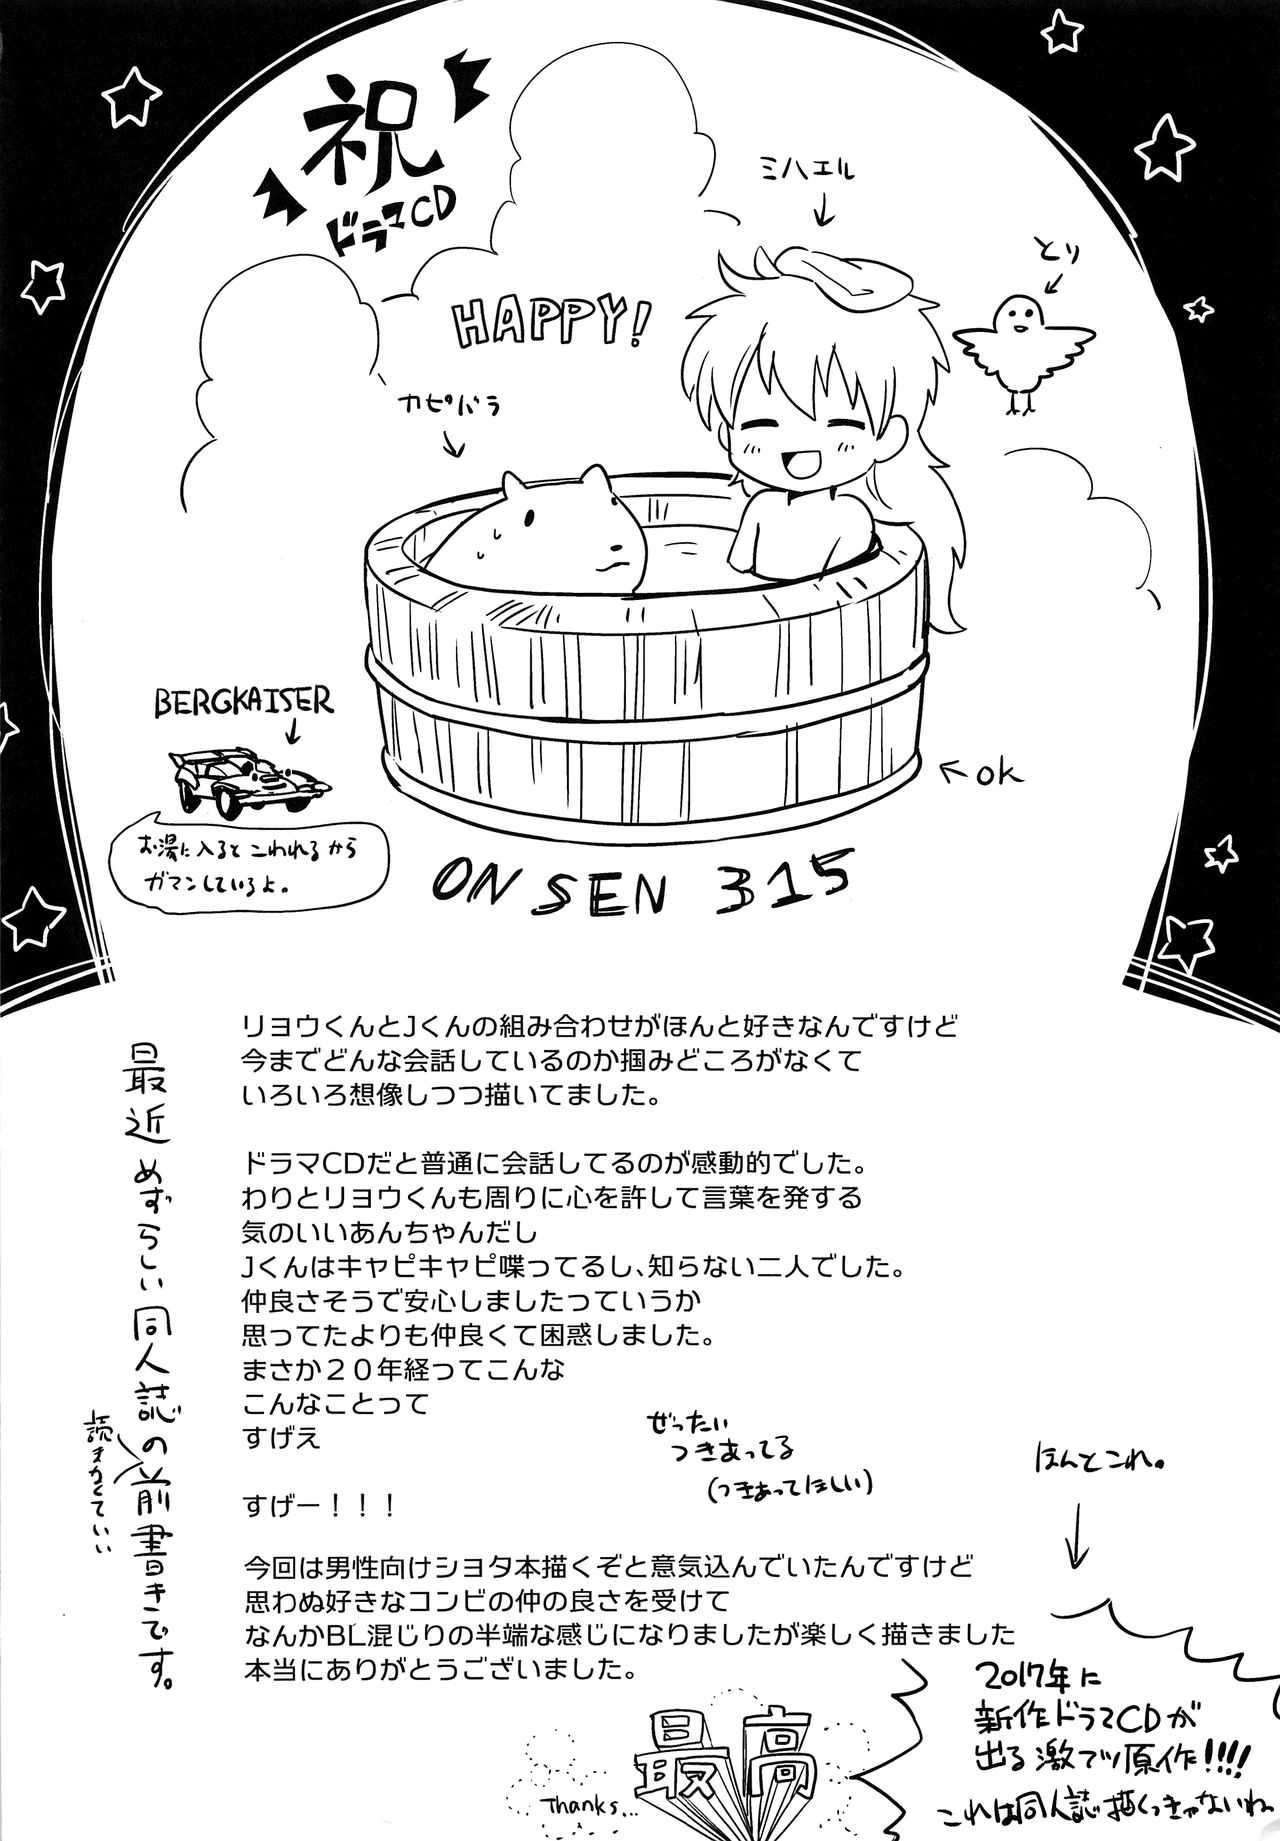 祝
ドラマCD
ミハエル
とり
HAPPY!
カピバラ
BERGKAISER
お湯に入るとこわれるから
ガマンしているよ。
←OK
ONSEN 315
リヨウくんとJくんの組み合わせがほんと好きなんですけど
今までどんな会話しているのか掴みどころがなくて
いろいろ想像しつつ描いてました。
ドラマCDだと普通に会話してるのが感動的でした。
わりとリヨウくんも周りに心を許して言葉を発する
気のいいあんちゃんだし
Jくんはキャピキャピ喋ってるし、知らない二人でした。
仲良さそうで安心しましたっていうか
思ってたよりも仲良くて困惑しました。
まさか20年経ってこんな
こんなことって
すげえ
すげー！！！
今回は男性向けショタ本描くぞと意気込んでいたんですけど
思わぬ好きなコンビの仲の良さを受けて
なんかBL混じりの半端な感じになりましたが楽しく描きました
本当にありがとうございました。
最近めずらしい同人誌の前書きです。
読まなくていい
ぜったい
つきあってる
(つきあってほしい)
ほんとこれ。
2017年に
新作ドラマCDが
出る激アツ原作!!!!
これは同人誌描くっきゃないね
最高
Thanks...